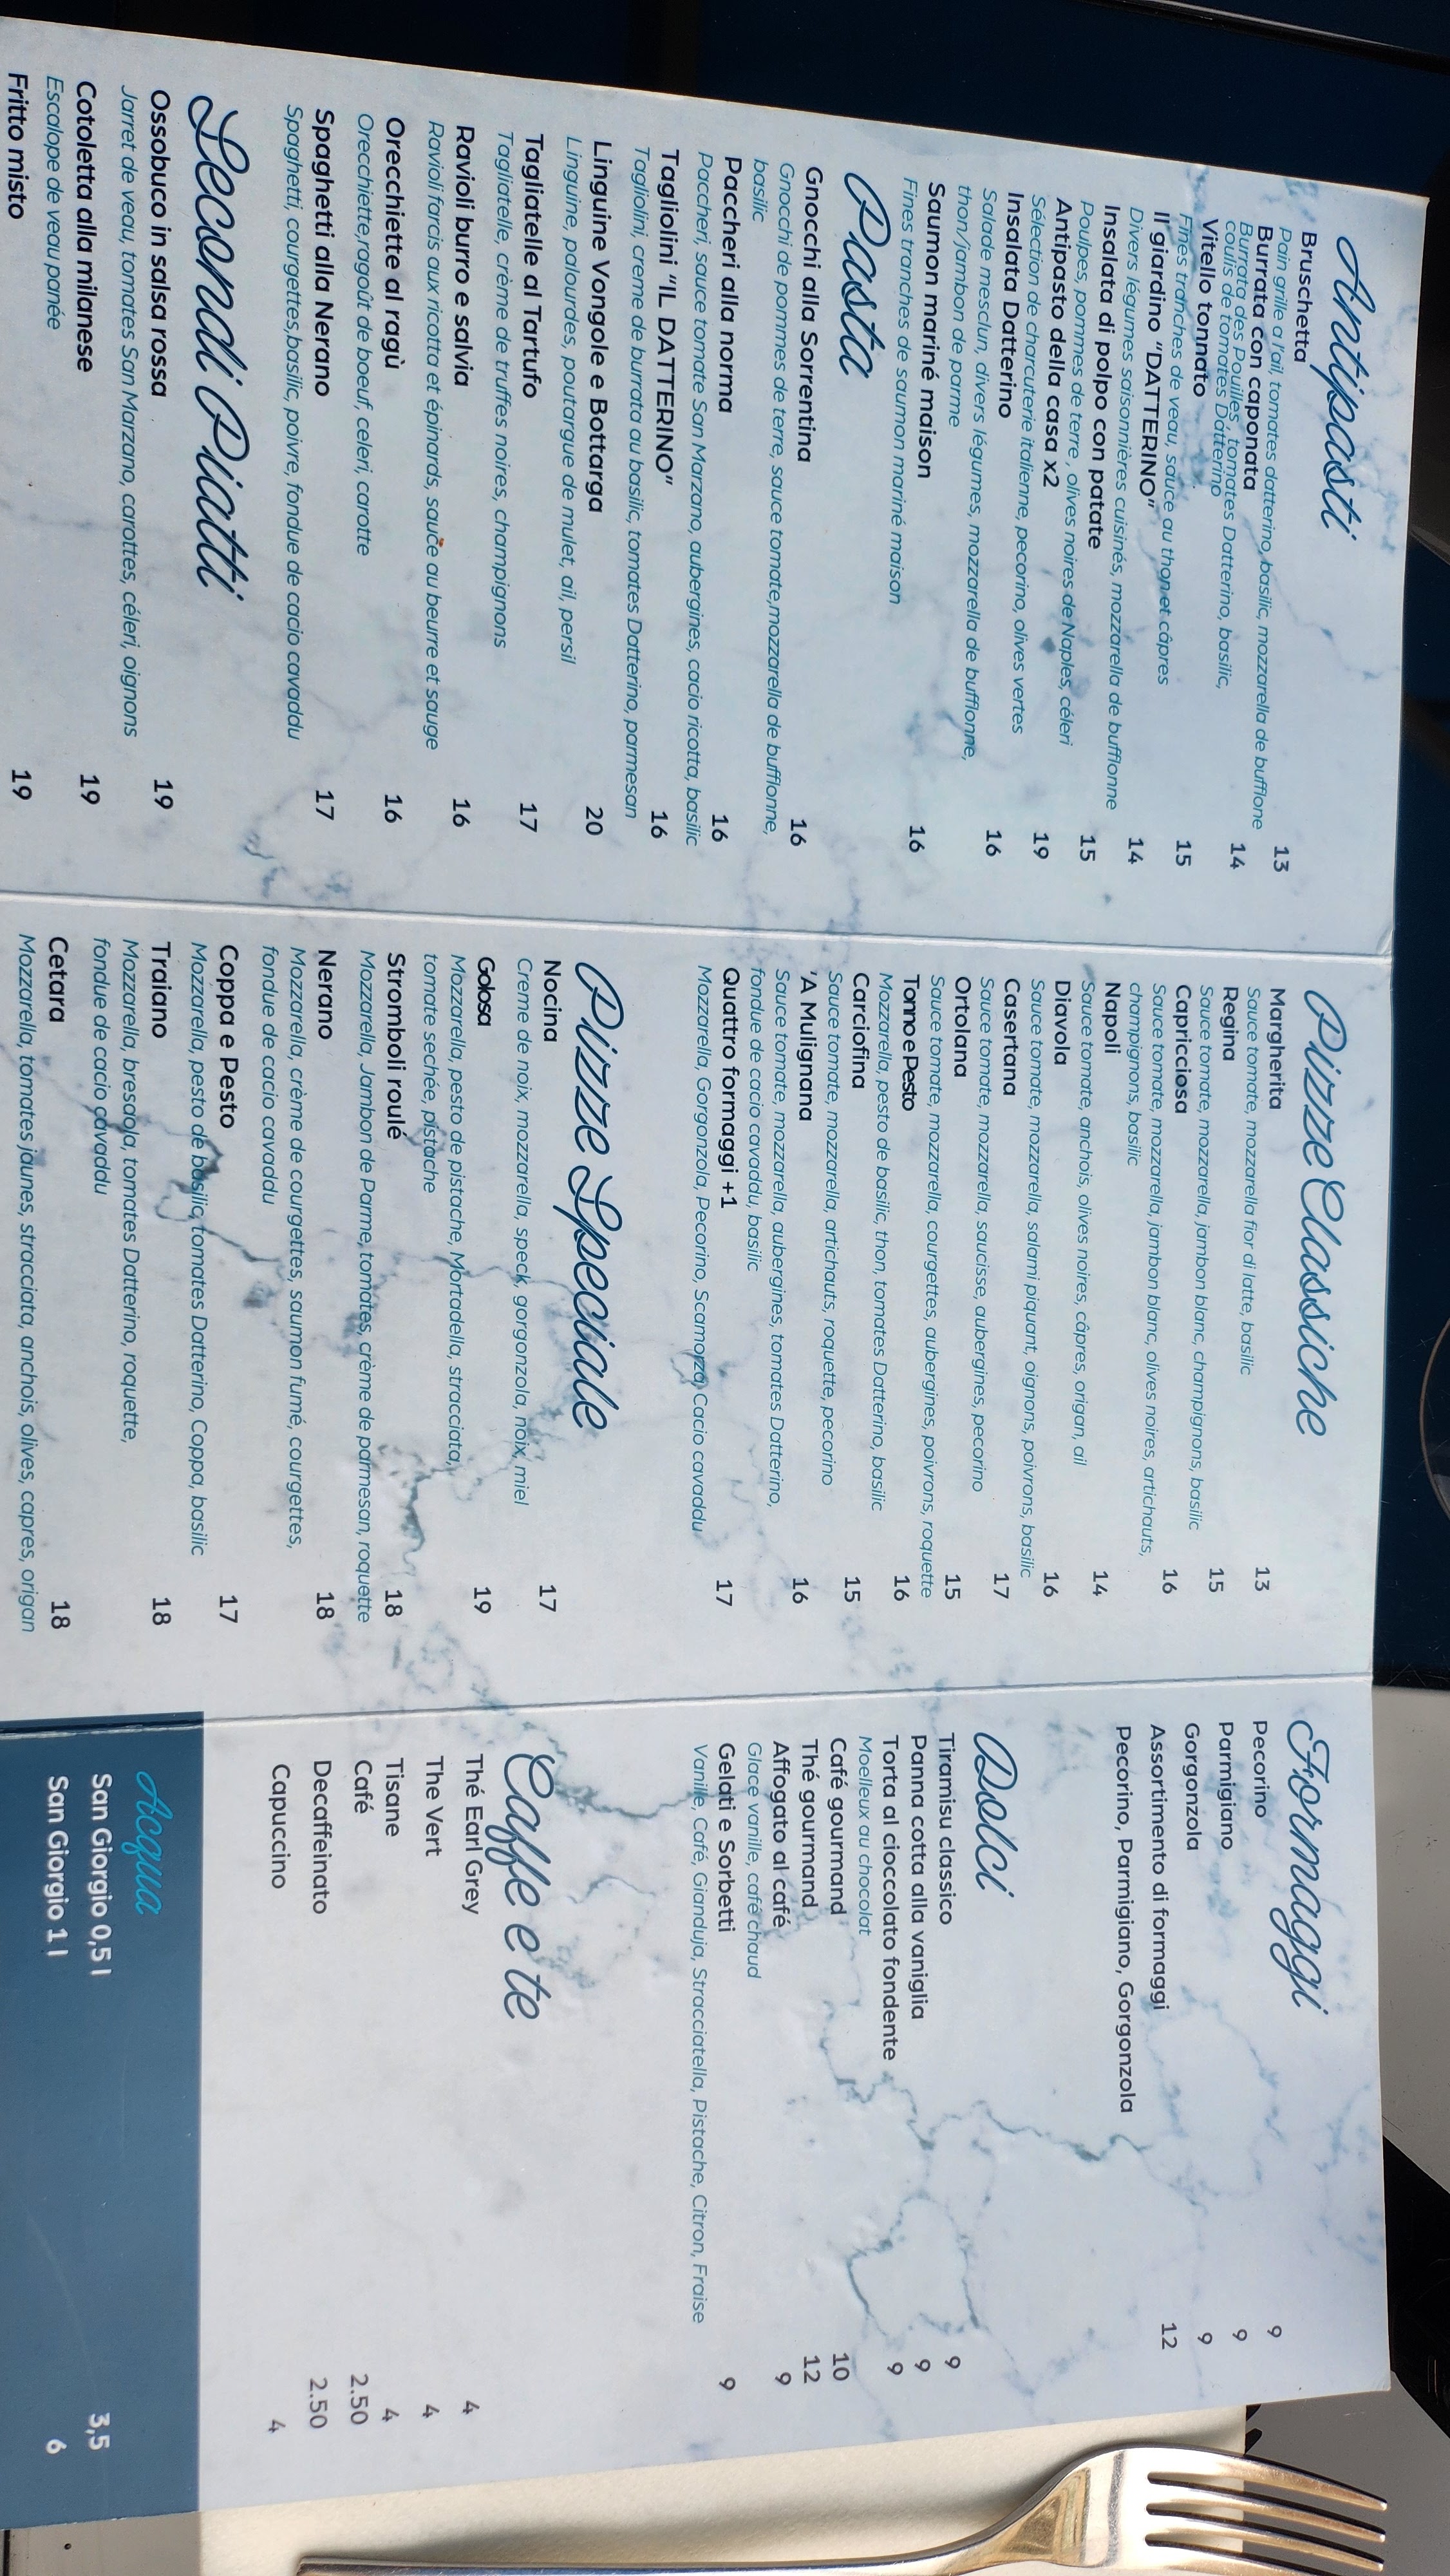 Antipasti
Bruschetta
Pain grille a l'ail, tomates datterino, basilic, mozzarella de bufflone 13
Burrata con caponata
Burrata des Pouilles, tomates Datterino, basilic, 14
coulis de tomates Datterino
Vitello tonnato
Fines tranches de veau, sauce au thon et câpres 15
Il giardino "DATTERINO"
Divers légumes saisonnières cuisinés, mozzarella de bufflonne 14
Insalata di polpo con patate
Poulpes, pommes de terre , olives noires de Naples, céleri 15
Antipasto della casa x2
Sélection de charcuterie italienne, pecorino, olives vertes 19
Insalata Datterino
Salade mesclun, divers légumes, mozzarella de bufflonne, 16
thon/jambon de parme
Saumon mariné maison
Fines tranches de saumon mariné maison 16
Pasta
Gnocchi alla Sorrentina
Gnocchi de pommes de terre, sauce tomate,mozzarella de bufflonne, 16
basilic
Paccheri alla norma 16
Paccheri, sauce tomate San Marzano, aubergines, cacio ricotta, basilic
Tagliolini "IL DATTERINO" 16
Tagliolini, creme de burrata au basilic, tomates Datterino, parmesan
Linguine Vongole e Bottarga 20
Linguine, palourdes, poutargue de mulet, ail, persil
Tagliatelle al Tartufo 17
Tagliatelle, crème de truffes noires, champignons
Ravioli burro e salvia 16
Ravioli farcis aux ricotta et épinards, sauce au beurre et sauge
Orecchiette al ragù 16
Orecchiette,ragoût de boeuf, celeri, carotte
Spaghetti alla Nerano 17
Spaghetti, courgettes,basilic, poivre, fondue de cacio cavaddu
Secondi Piatti
Ossobuco in salsa rossa 19
Jarret de veau, tomates San Marzano, carottes, céleri, oignons
Cotoletta alla milanese 19
Escalope de veau panée
Fritto misto 19
Pizze Classiche
Margherita
Sauce tomate, mozzarella fior di latte, basilic 13
Regina
Sauce tomate, mozzarella, jambon blanc, champignons, basilic 15
Capricciosa
Sauce tomate, mozzarella, jambon blanc, olives noires, artichauts, 16
champignons, basilic
Napoli
Sauce tomate, anchois, olives noires, câpres, origan, ail 14
Diavola
Sauce tomate, mozzarella, salami piquant, oignons, poivrons, basilic 16
Casertana
Sauce tomate, mozzarella, saucisse, aubergines, pecorino 17
Ortolana
Sauce tomate, mozzarella, courgettes, aubergines, poivrons, roquette 15
Tonno e Pesto
Mozzarella, pesto de basilic, thon, tomates Datterino, basilic 16
Carciofina
Sauce tomate, mozzarella, artichauts, roquette, pecorino 15
'A Mulignana
Sauce tomate, mozzarella, aubergines, tomates Datterino, 16
fondue de cacio cavaddu, basilic
Quattro formaggi +1 17
Mozzarella, Gorgonzola, Pecorino, Scamorza, Cacio cavaddu
Pizze Speciale
Nocina 17
Creme de noix, mozzarella, speck, gorgonzola, noix, miel
Golosa 19
Mozzarella, pesto de pistache, Mortadella, stracciata,
tomate sechée, pistache
Stromboli roulé 18
Mozzarella, Jambon de Parme, tomates, crème de parmesan, roquette
Nerano 18
Mozzarella, crème de courgettes, saumon fumé, courgettes,
fondue de cacio cavaddu
Coppa e Pesto 17
Mozzarella, pesto de basilic, tomates Datterino, Coppa, basilic
Traiano 18
Mozzarella, bresaola, tomates Datterino, roquette,
fondue de cacio cavaddu
Cetara 18
Mozzarella, tomates jaunes, stracciata, anchois, olives, capres, origan
Formaggi
Pecorino 9
Parmigiano 9
Gorgonzola 9
Assortimento di formaggi 12
Pecorino, Parmigiano, Gorgonzola
Dolci
Tiramisu classico 9
Panna cotta alla vaniglia 9
Torta al cioccolato fondente 9
Moelleux au chocolat
Café gourmand 10
Thé gourmand 12
Affogato al café 9
Glace vanille, café chaud
Gelati e Sorbetti 9
Vanille, Café, Gianduja, Stracciatella, Pistache, Citron, Fraise
Caffe e te
Thé Earl Grey 4
The Vert 4
Tisane 4
Café 2.50
Decaffeinato 2.50
Capuccino 4
Acqua
San Giorgio 0,5 l 3,5
San Giorgio 1 l 6